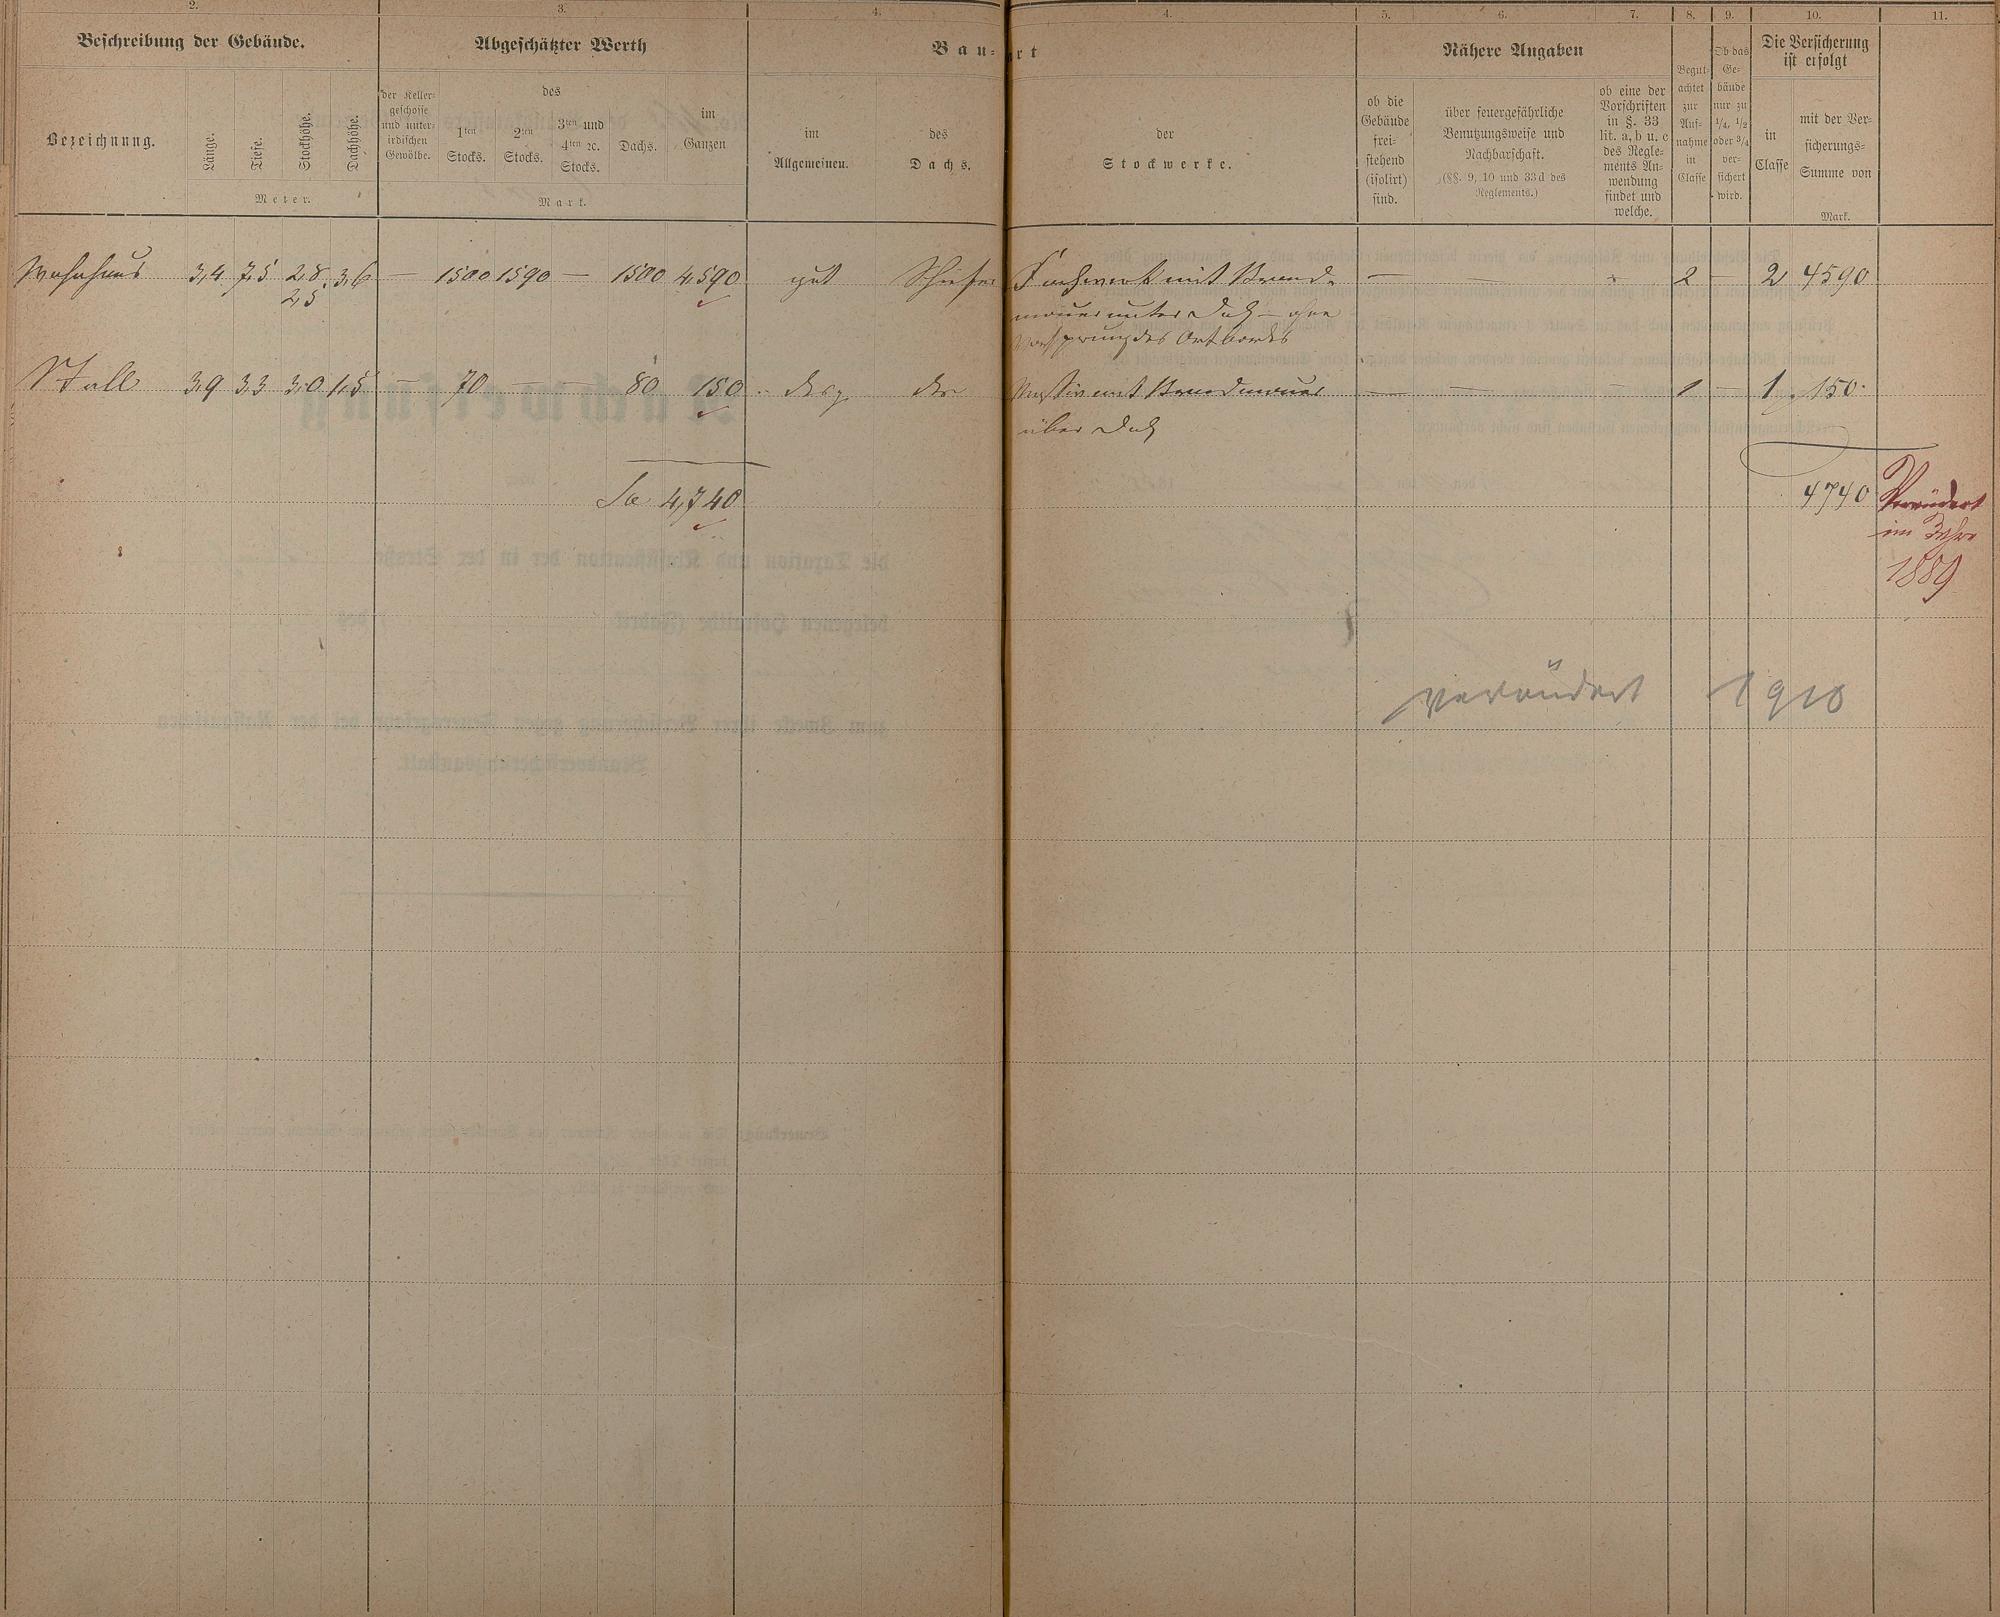 2. 3. 4. 4. 5. 6. 7. 8. 9. 10. 11.
Beschreibung der Gebäude. Abgeschätzter Werth Bau- art Nähere Angaben
Die Versicherung
ist erfolgt
Bezeichnung.
Länge.
Tiefe.
Stockhöhe.
Dachhöhe.
Meter.
der Keller-
geschosse
und unter-
irdischen
Gewölbe.
des
1ten
Stocks.
2ten
Stocks.
3ten und
4ten ꝛc.
Stocks.
Dachs.
im
Ganzen
Mark.
im
Allgemeinen.
des
Dachs.
der
Stockwerke.
ob die
Gebäude
frei-
stehend
(isolirt)
sind.
über feuergefährliche
Benutzungsweise und
Nachbarschaft.
(§§. 9, 10 und 33d des
Reglements.)
ob eine der
Vorschriften
in §. 33
lit. a, b u. c
des Regle-
ments An-
wendung
findet und
welche.
Begut-
achtet
zur
Auf-
nahme
in
Classe
Ob das
Ge-
bäude
nur zu
1/4, 1/2
oder 3/4
ver-
sichert
wird.
in
Classe
mit der Ver-
sicherungs-
Summe von
Mark.
Wohnhaus 3,4 7,5 2,8 3,6 — 1500 1590 — 1500 4,590 gut Schiefer Fachwerk mit Brand- — — — 2 — 2 4590
2,5
mauer unter Dach – ohne
Vorsprung des Ortbordes
Stall 3,9 3,3 3,0 1,5 — 70 — — 80 150 desg. des Massiv mit Brandmauer — — — 1 — 1 150.
über Dach
Sa 4,740 4740
Verändert
im Jahre
1889
verändert 1910